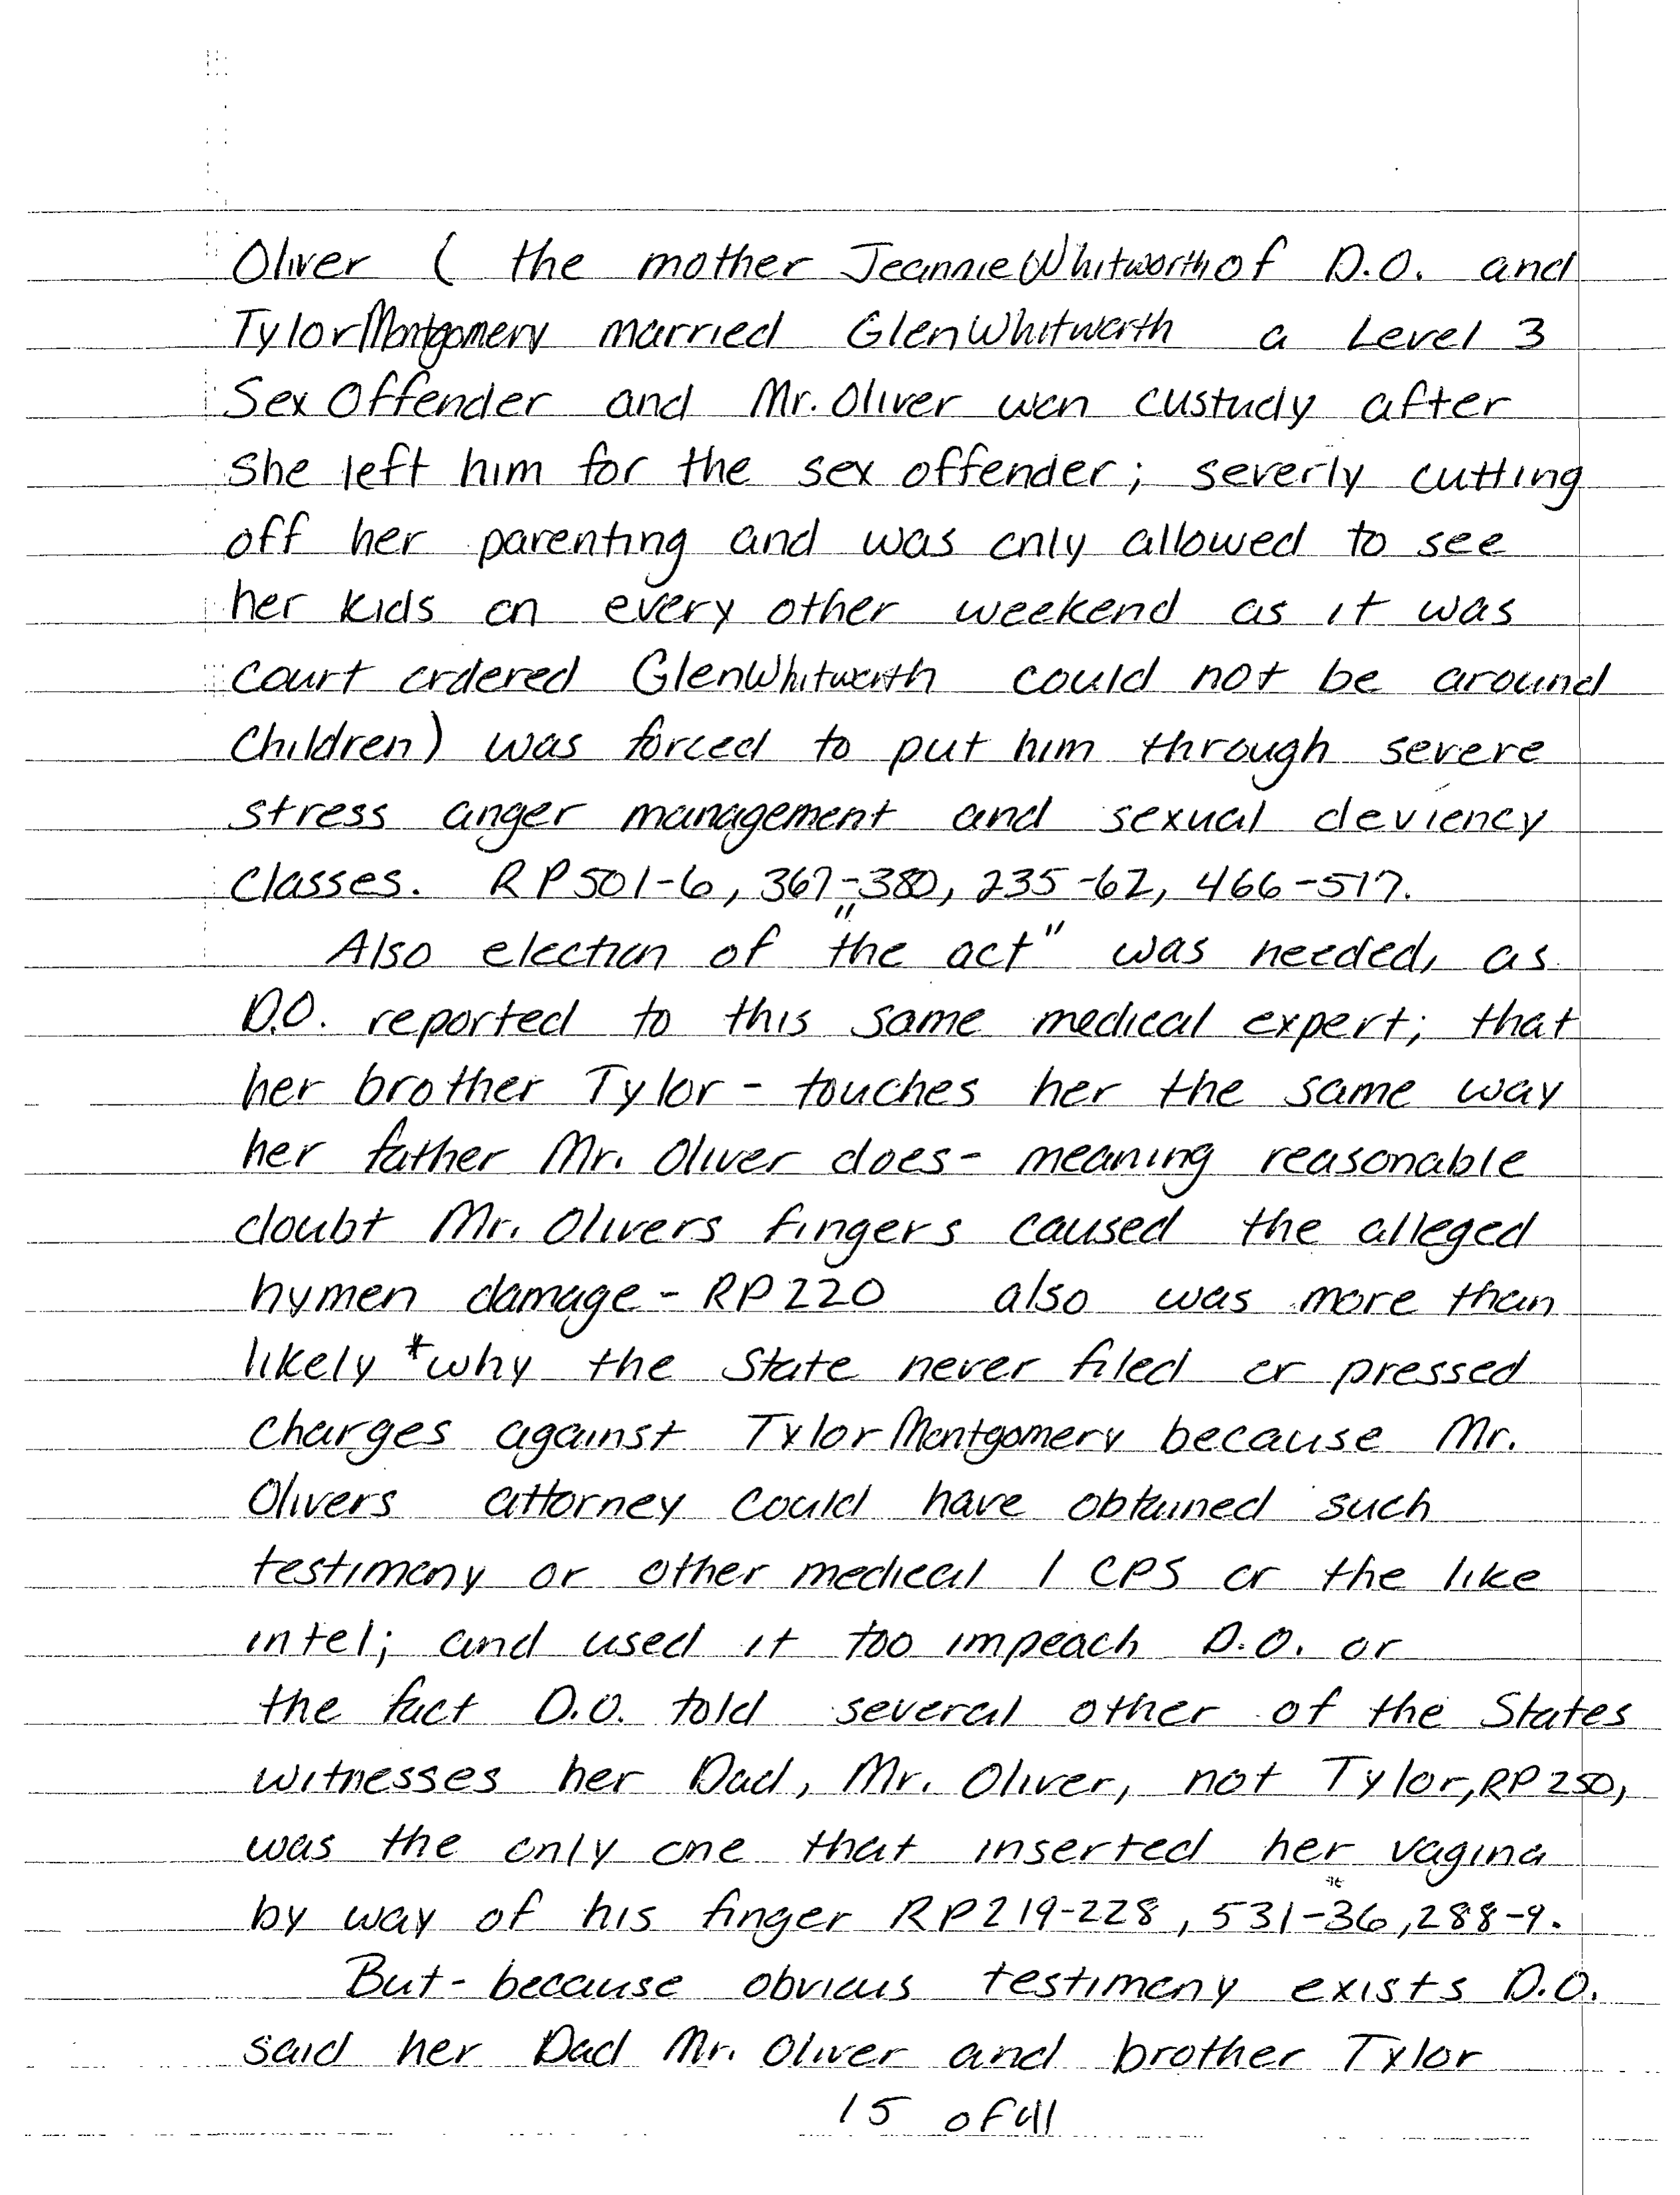 Oliver ( the mother Jeannie Whitworth of D.O. and
Tylor Montgomery married Glen Whitworth a Level 3
Sex Offender and Mr. Oliver won custudy after
She left him for the sex offender; severly cutting
off her parenting and was only allowed to see
her kids on every other weekend as it was
court ordered Glen Whitworth could not be around
Children) was forced to put him through severe
stress anger management and sexual deviency
Classes. RP 501-6, 367-380, 235-62, 466-517.
Also election of "the act" was needed, as
D.O. reported to this same medical expert; that
her brother Tylor - touches her the same way
her father Mr. Oliver does - meaning reasonable
doubt Mr. Olivers fingers caused the alleged
hymen damage - RP 220 also was more than
likely *why the State never filed or pressed
Charges against Tylor Montgomery because Mr.
Olivers attorney could have obtained such
testimony or other medical / CPS or the like
intel; and used it too impeach D.O. or
the fact D.O. told several other of the States
witnesses her Dad, Mr. Oliver, not Tylor, RP 250,
was the only one that inserted her vagina
by way of his finger RP 219-228, 531-36, 288-9.
But - because obvious testimony exists D.O.
said her Dad Mr. Oliver and brother Tylor
15 of 41